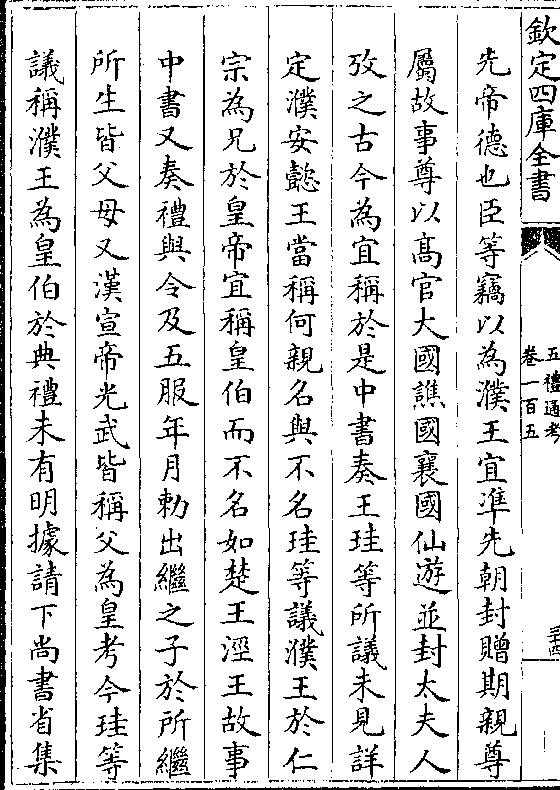 欽定四庫全書
五禮通考
卷一百五
先帝德也臣等竊以為濮王宜準先朝封贈期親尊
屬故事尊以髙官大國譙國襄國仙遊並封太夫人
攷之古今為宜稱於是中書奏王珪等所議未見詳
定濮安懿王當稱何親名與不名珪等議濮王於仁
宗為兄於皇帝宜稱皇伯而不名如楚王涇王故事
中書又奏禮與令及五服年月勅出繼之子於所繼
所生皆父母又漢宣帝光武皆稱父為皇考今珪等
議稱濮王為皇伯於典禮未有明據請下尚書省集